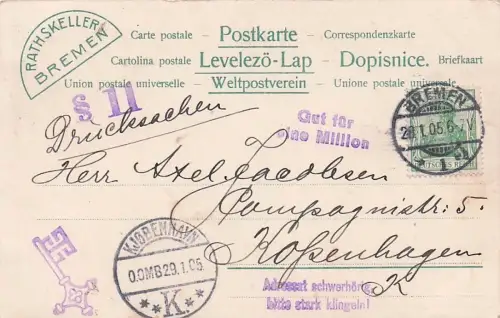 RATHSKELLER
BREMEN
Carte postale – Postkarte – Correspondenzkarte
Cartolina postale – Levelezö-Lap – Dopisnice. Briefkaart
Union postale universelle – Weltpostverein – Unione postale universelle
§ 11
Drucksachen
Gut für
eine Million
BREMEN
1.05.6-7V
DEUTSCHES REICH
Herr Axel Jacobsen
Compagnistr: 5.
Kopenhagen
K
KJØBENHAVN
O.OMB 29.1.05
K.
Adressat schwerhörig
bitte stark klingeln!